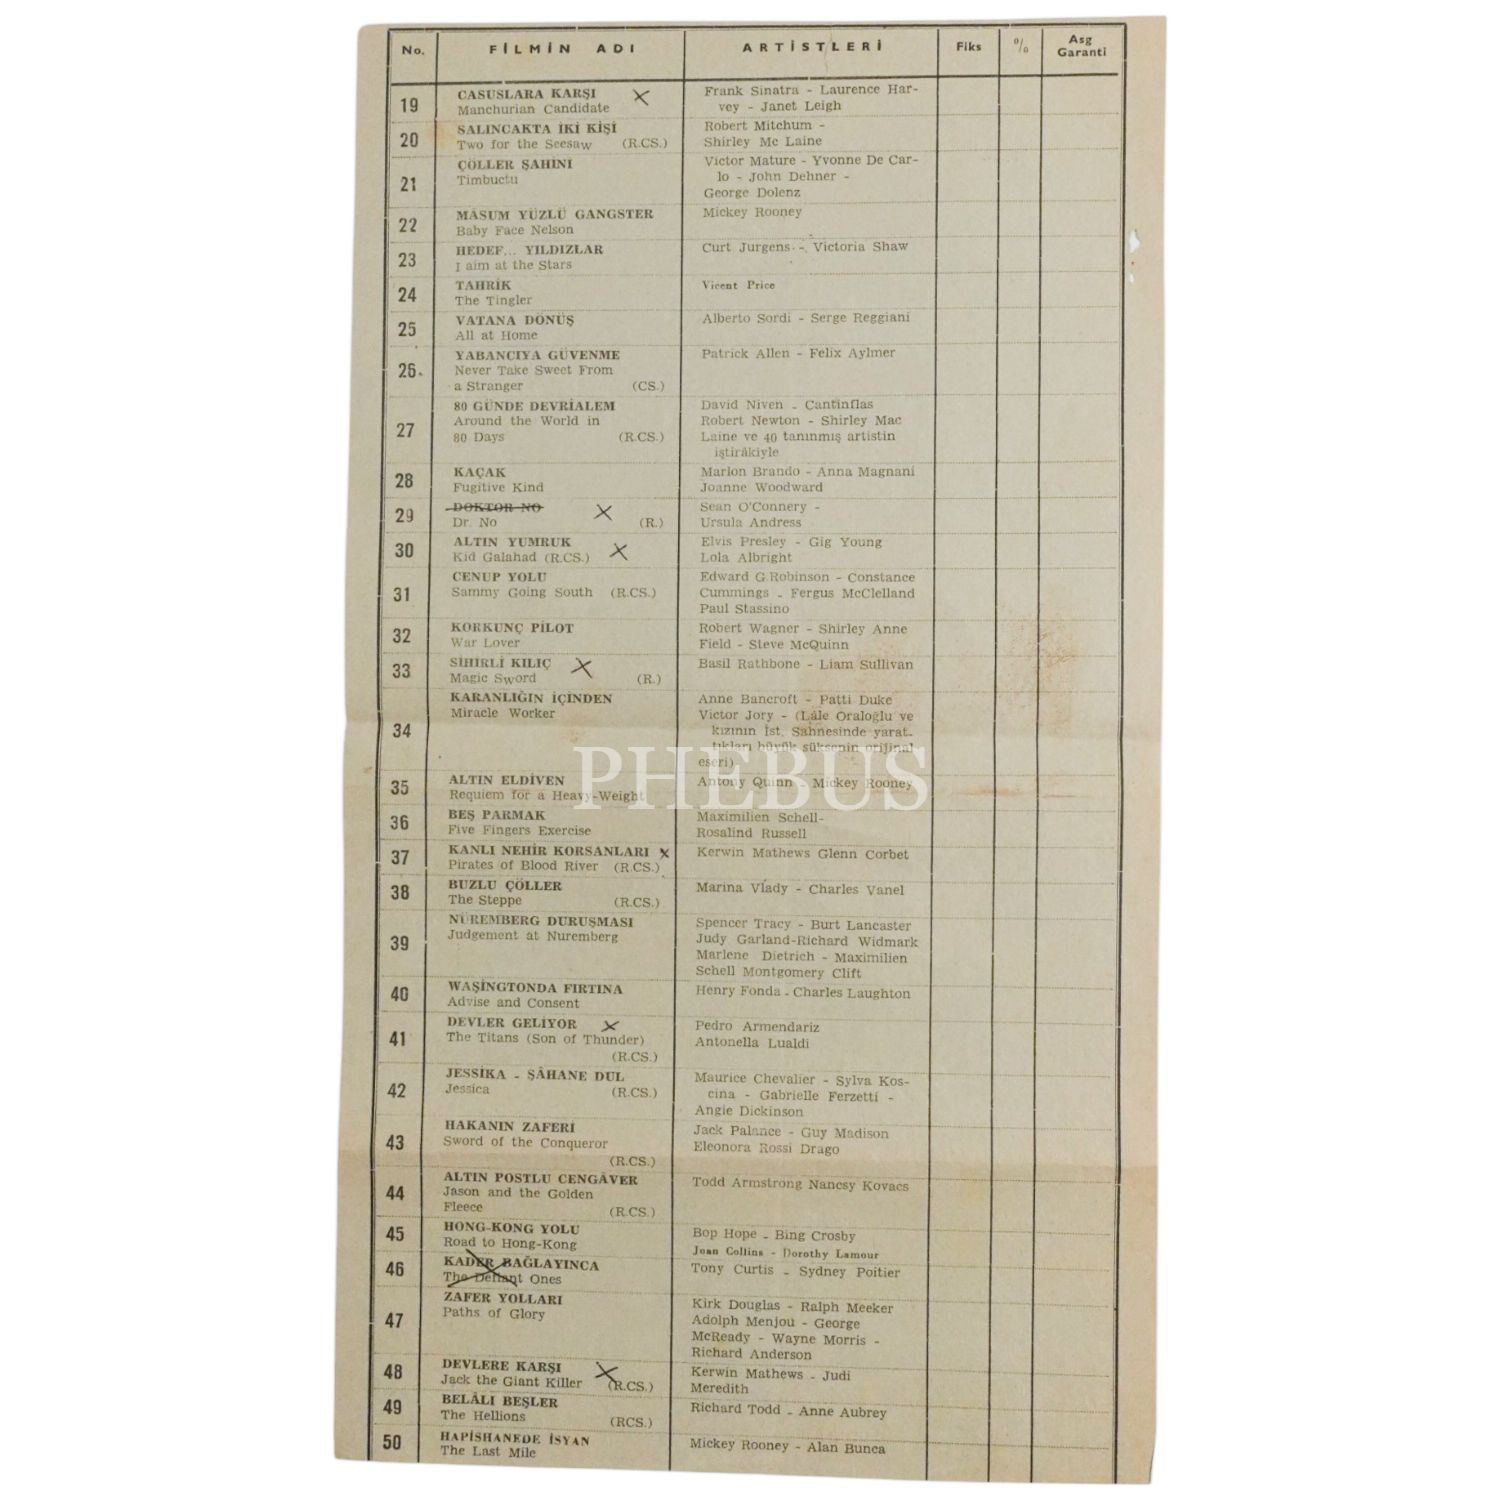 No. FİLMİN ADI ARTİSTLERİ Fiks % Asg
Garanti
19 CASUSLARA KARŞI Frank Sinatra - Laurence Har-
Manchurian Candidate vey - Janet Leigh
20 SALINCAKTA İKİ KİŞİ Robert Mitchum -
Two for the Seesaw (R.CS.) Shirley Mc Laine
21 ÇÖLLER ŞAHİNİ Victor Mature - Yvonne De Car-
Timbuctu lo - John Dehner -
George Dolenz
22 MASUM YÜZLÜ GANGSTER Mickey Rooney
Baby Face Nelson
23 HEDEF... YILDIZLAR Curt Jurgens - Victoria Shaw
I aim at the Stars
24 TAHRİK Vicent Price
The Tingler
25 VATANA DÖNÜŞ Alberto Sordi - Serge Reggiani
All at Home
26. YABANCIYA GÜVENME Patrick Allen - Felix Aylmer
Never Take Sweet From
a Stranger (CS.)
27 80 GÜNDE DEVRİALEM David Niven - Cantinflas
Around the World in Robert Newton - Shirley Mac
80 Days (R.CS.) Laine ve 40 tanınmış artistin
iştirâkiyle
28 KAÇAK Marlon Brando - Anna Magnani
Fugitive Kind Joanne Woodward
29 DOKTOR NO Sean O'Connery -
Dr. No (R.) Ursula Andress
30 ALTIN YUMRUK Elvis Presley - Gig Young
Kid Galahad (R.CS.) Lola Albright
31 CENUP YOLU Edward G.Robinson - Constance
Sammy Going South (R.CS.) Cummings - Fergus McClelland
Paul Stassino
32 KORKUNÇ PİLOT Robert Wagner - Shirley Anne
War Lover Field - Steve McQuinn
33 SİHIRLİ KILIÇ Basil Rathbone - Liam Sullivan
Magic Sword (R.)
34 KARANLIĞIN İÇİNDEN Anne Bancroft - Patti Duke
Miracle Worker Victor Jory - (Lâle Oraloğlu ve
kızının İst. Sahnesinde yarat-
tıkları büyük süksenin orijinal
eseri)
PHEBUS
35 ALTIN ELDİVEN Antony Quinn - Mickey Rooney
Requiem for a Heavy-Weight
36 BEŞ PARMAK Maximilien Schell-
Five Fingers Exercise Rosalind Russell
37 KANLI NEHİR KORSANLARI Kerwin Mathews Glenn Corbet
Pirates of Blood River (R.CS.)
38 BUZLU ÇÖLLER Marina Vlady - Charles Vanel
The Steppe (R.CS.)
39 NUREMBERG DURUŞMASI Spencer Tracy - Burt Lancaster
Judgement at Nuremberg Judy Garland-Richard Widmark
Marlene Dietrich - Maximilien
Schell Montgomery Clift
40 WAŞİNGTONDA FIRTINA Henry Fonda - Charles Laughton
Advise and Consent
41 DEVLER GELİYOR Pedro Armendariz
The Titans (Son of Thunder) Antonella Lualdi
(R.CS.)
42 JESSİKA - ŞÂHANE DUL Maurice Chevalier - Sylva Kos-
Jessica (R.CS.) cina - Gabrielle Ferzetti -
Angie Dickinson
43 HAKANIN ZAFERİ Jack Palance - Guy Madison
Sword of the Conqueror Eleonora Rossi Drago
(R.CS.)
44 ALTIN POSTLU CENGÂVER Todd Armstrong Nancsy Kovacs
Jason and the Golden
Fleece (R.CS.)
45 HONG-KONG YOLU Bop Hope - Bing Crosby
Road to Hong-Kong Joan Collins - Dorothy Lamour
46 KADER BAĞLAYINCA Tony Curtis - Sydney Poitier
The Defiant Ones
47 ZAFER YOLLARI Kirk Douglas - Ralph Meeker
Paths of Glory Adolph Menjou - George
McReady - Wayne Morris -
Richard Anderson
48 DEVLERE KARŞI Kerwin Mathews - Judi
Jack the Giant Killer (R.CS.) Meredith
49 BELÂLI BEŞLER Richard Todd - Anne Aubrey
The Hellions (RCS.)
50 HAPİSHANEDE İSYAN Mickey Rooney - Alan Bunca
The Last Mile